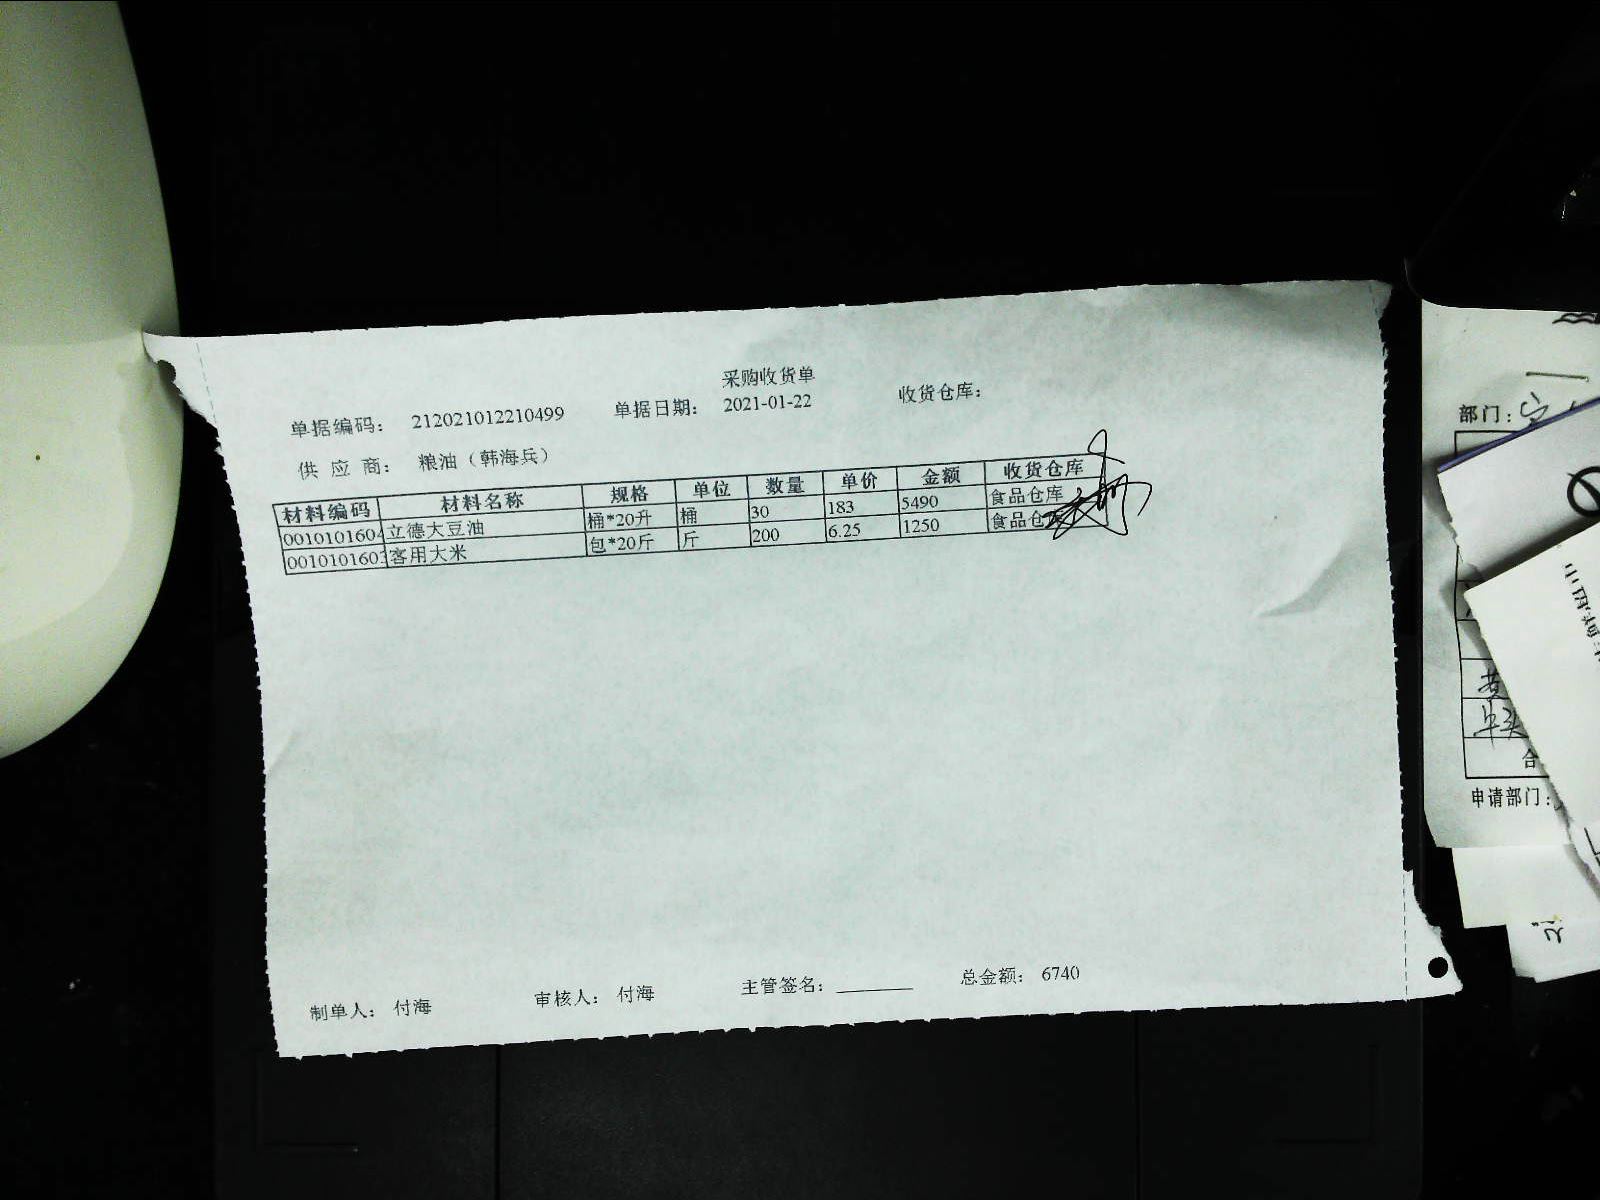 采购收货单
单据编码： 212021012210499 单据日期： 2021-01-22 收货仓库：
供 应 商： 粮油（韩海兵）
材料编码 材料名称 规格 单位 数量 单价 金额 收货仓库
0010101604 立德大豆油 桶*20升 桶 30 183 5490 食品仓库
001010160 客用大米 包*20斤 斤 200 6.25 1250 食品仓
制单人： 付海 审核人： 付海 主管签名： 总金额： 6740
部门：
合
申请部门：